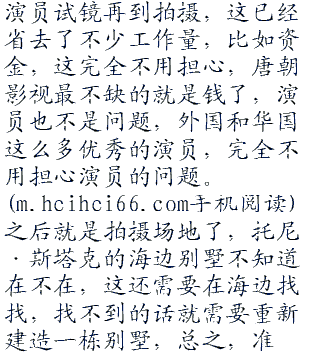 演员试镜再到拍摄，这已经
省去了不少工作量，比如资
金，这完全不用担心，唐朝
影视最不缺的就是钱了，演
员也不是问题，外国和华国
这么多优秀的演员，完全不
用担心演员的问题。
(m.hcihci66.com手机阅读)
之后就是拍摄场地了，托尼
·斯塔克的海边别墅不知道
在不在，这还需要在海边找
找，找不到的话就需要重新
建造一栋别墅，总之，准